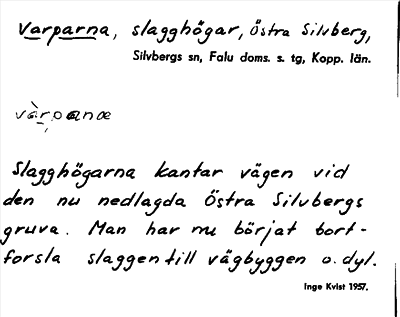 Varparna, slagghögar, Östra Silvberg,
Silvbergs sn, Falu doms. s. tg, Kopp. län.
vàrpanæ
Slagghögarna kantar vägen vid
den nu nedlagda Östra Silvbergs
gruva. Man har nu börjat bort-
forsla slaggen till vägbyggen o.dyl.
Inge Kvist 1957.